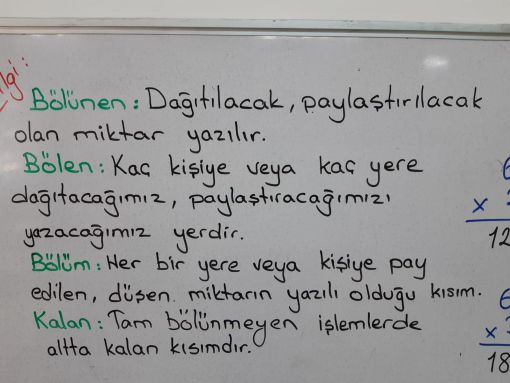 Bölünen: Dağıtılacak, paylaştırılacak
olan miktar yazılır.
Bölen: Kaç kişiye veya kaç yere
dağıtacağımız, paylaştıracağımızı
yazacağımız yerdir.
Bölüm: Her bir yere veya kişiye pay
edilen, düşen miktarın yazılı olduğu kısım.
Kalan: Tam bölünmeyen işlemlerde
altta kalan kısımdır.
6
x
12
6
x
18